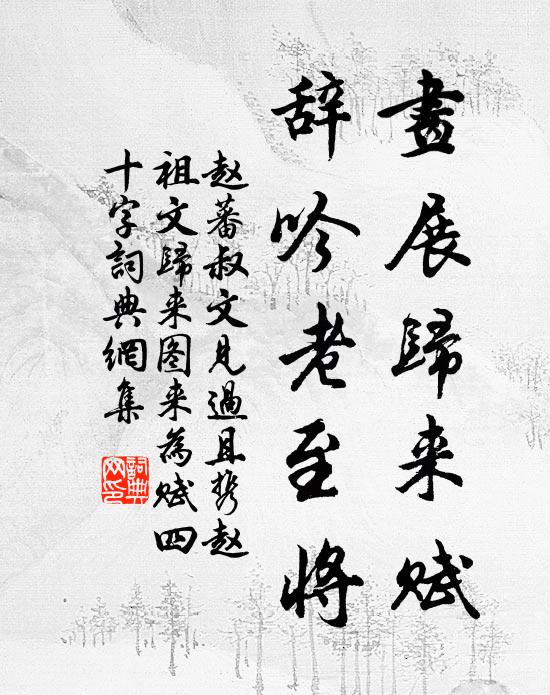 畫展歸来赋
辞吟老至将
赵蕃叔文见過且携赵
祖文歸来图来為赋四
十字詞典網集
詞典
网印